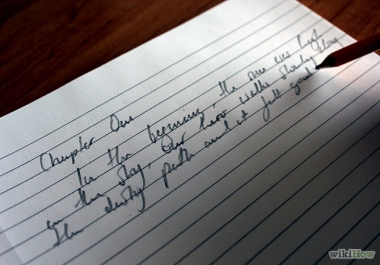 Chapter One
In the beginning, the sun was high
in the sky, Our hero walks slowly along
the dusty path and it felt good
wikiHow